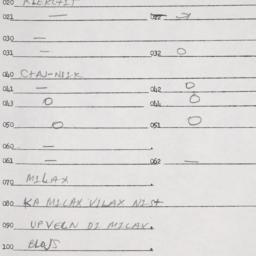 020 KLERGIT
021 — 022
030 —
031 — 032 O
040 CTAJ-NIIK
041 — 042 O
043 O 044 O
050 O 051 O
060 —
061 — 062 —
070 MILAX
080 KA MILAX VILAX NIST
090 UPVELN DI MILAX.
100 BLOJS